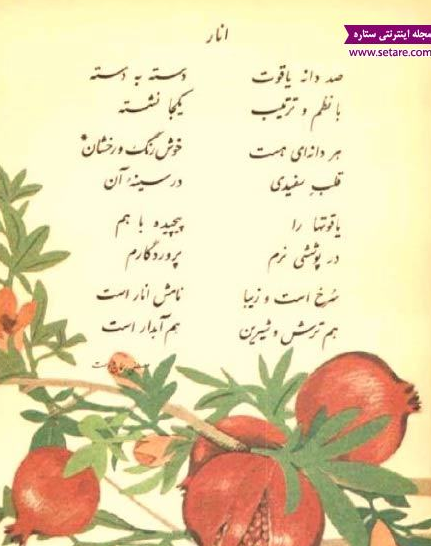 مجله اینترنتی ستاره
www.setare.com
انار
صد دانه یاقوت دسته به دسته
با نظم و ترتیب یکجا نشسته
هر دانه‌ای هست خوش رنگ و رخشان*
قلب سفیدی در سینهٔ آن
یاقوتها را پیچیده با هم
در پوششی نرم پروردگارم
سرخ است و زیبا نامش انار است
هم ترش و شیرین هم آبدار است
مصطفی رحماندوست